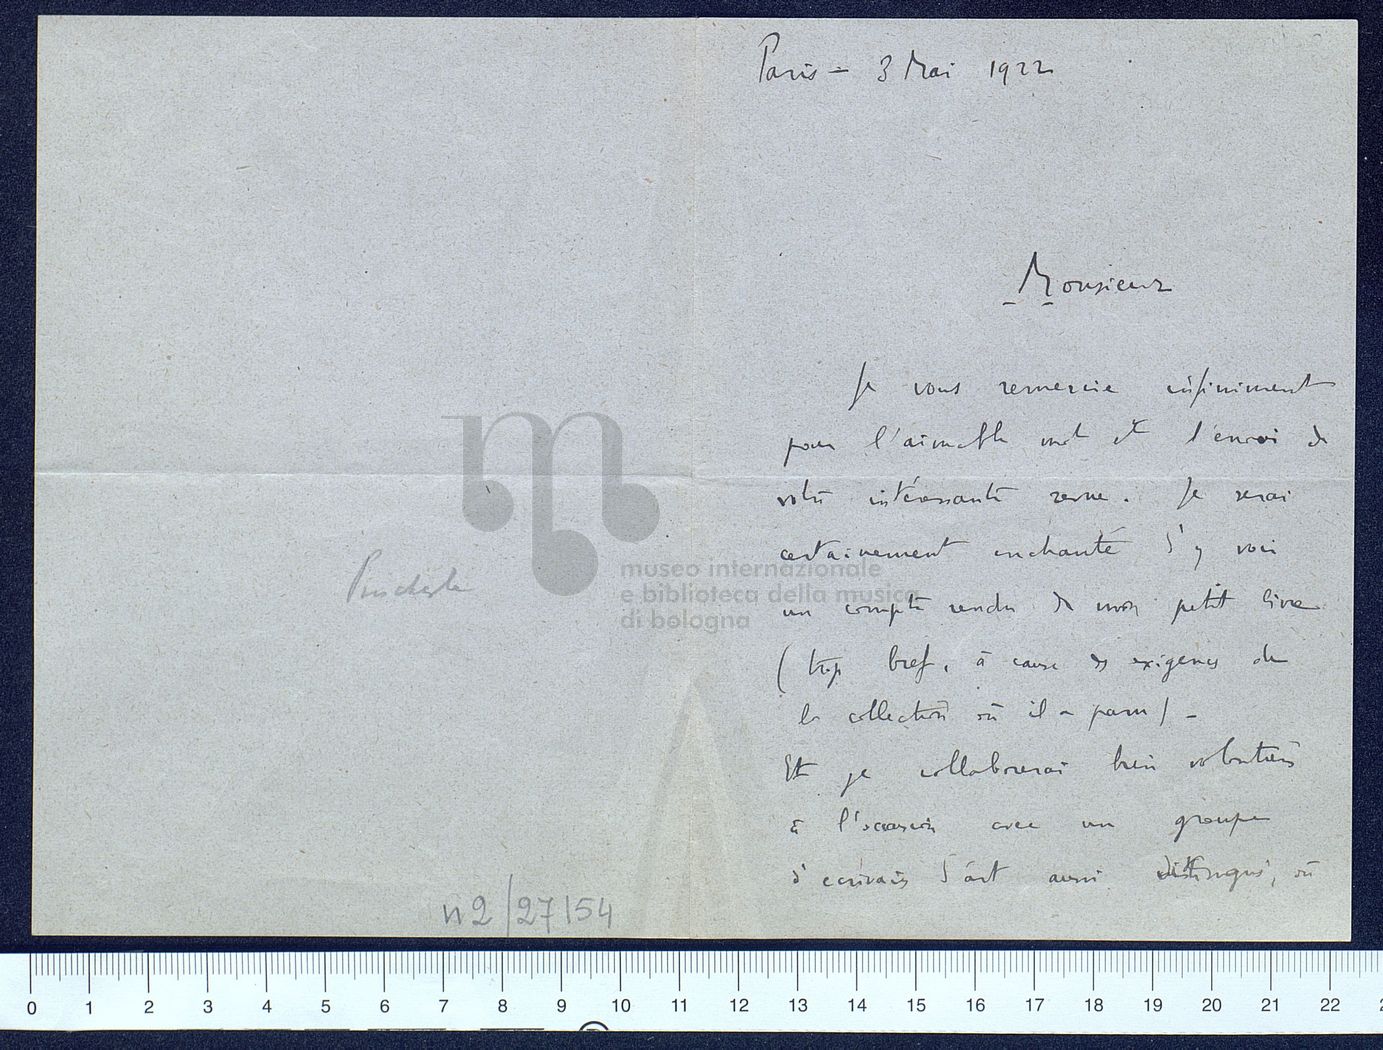 Paris – 3 Mai 1922
Monsieur
Je vous remercie infiniment
pour l'aimable mot et l'envoi de
votre intéressante revue. Je serai
certainement enchanté d'y voir
un compte rendu de mon petit livre
(trop bref, à cause des exigences de
la collection où il a paru) –
Et je collaborerai bien volontiers
à l'occasion avec un groupe
d'écrivains d'art aussi distingué, où
museo internazionale
e biblioteca della musica
di bologna
n2/27/54
0 1 2 3 4 5 6 7 8 9 10 11 12 13 14 15 16 17 18 19 20 21 22